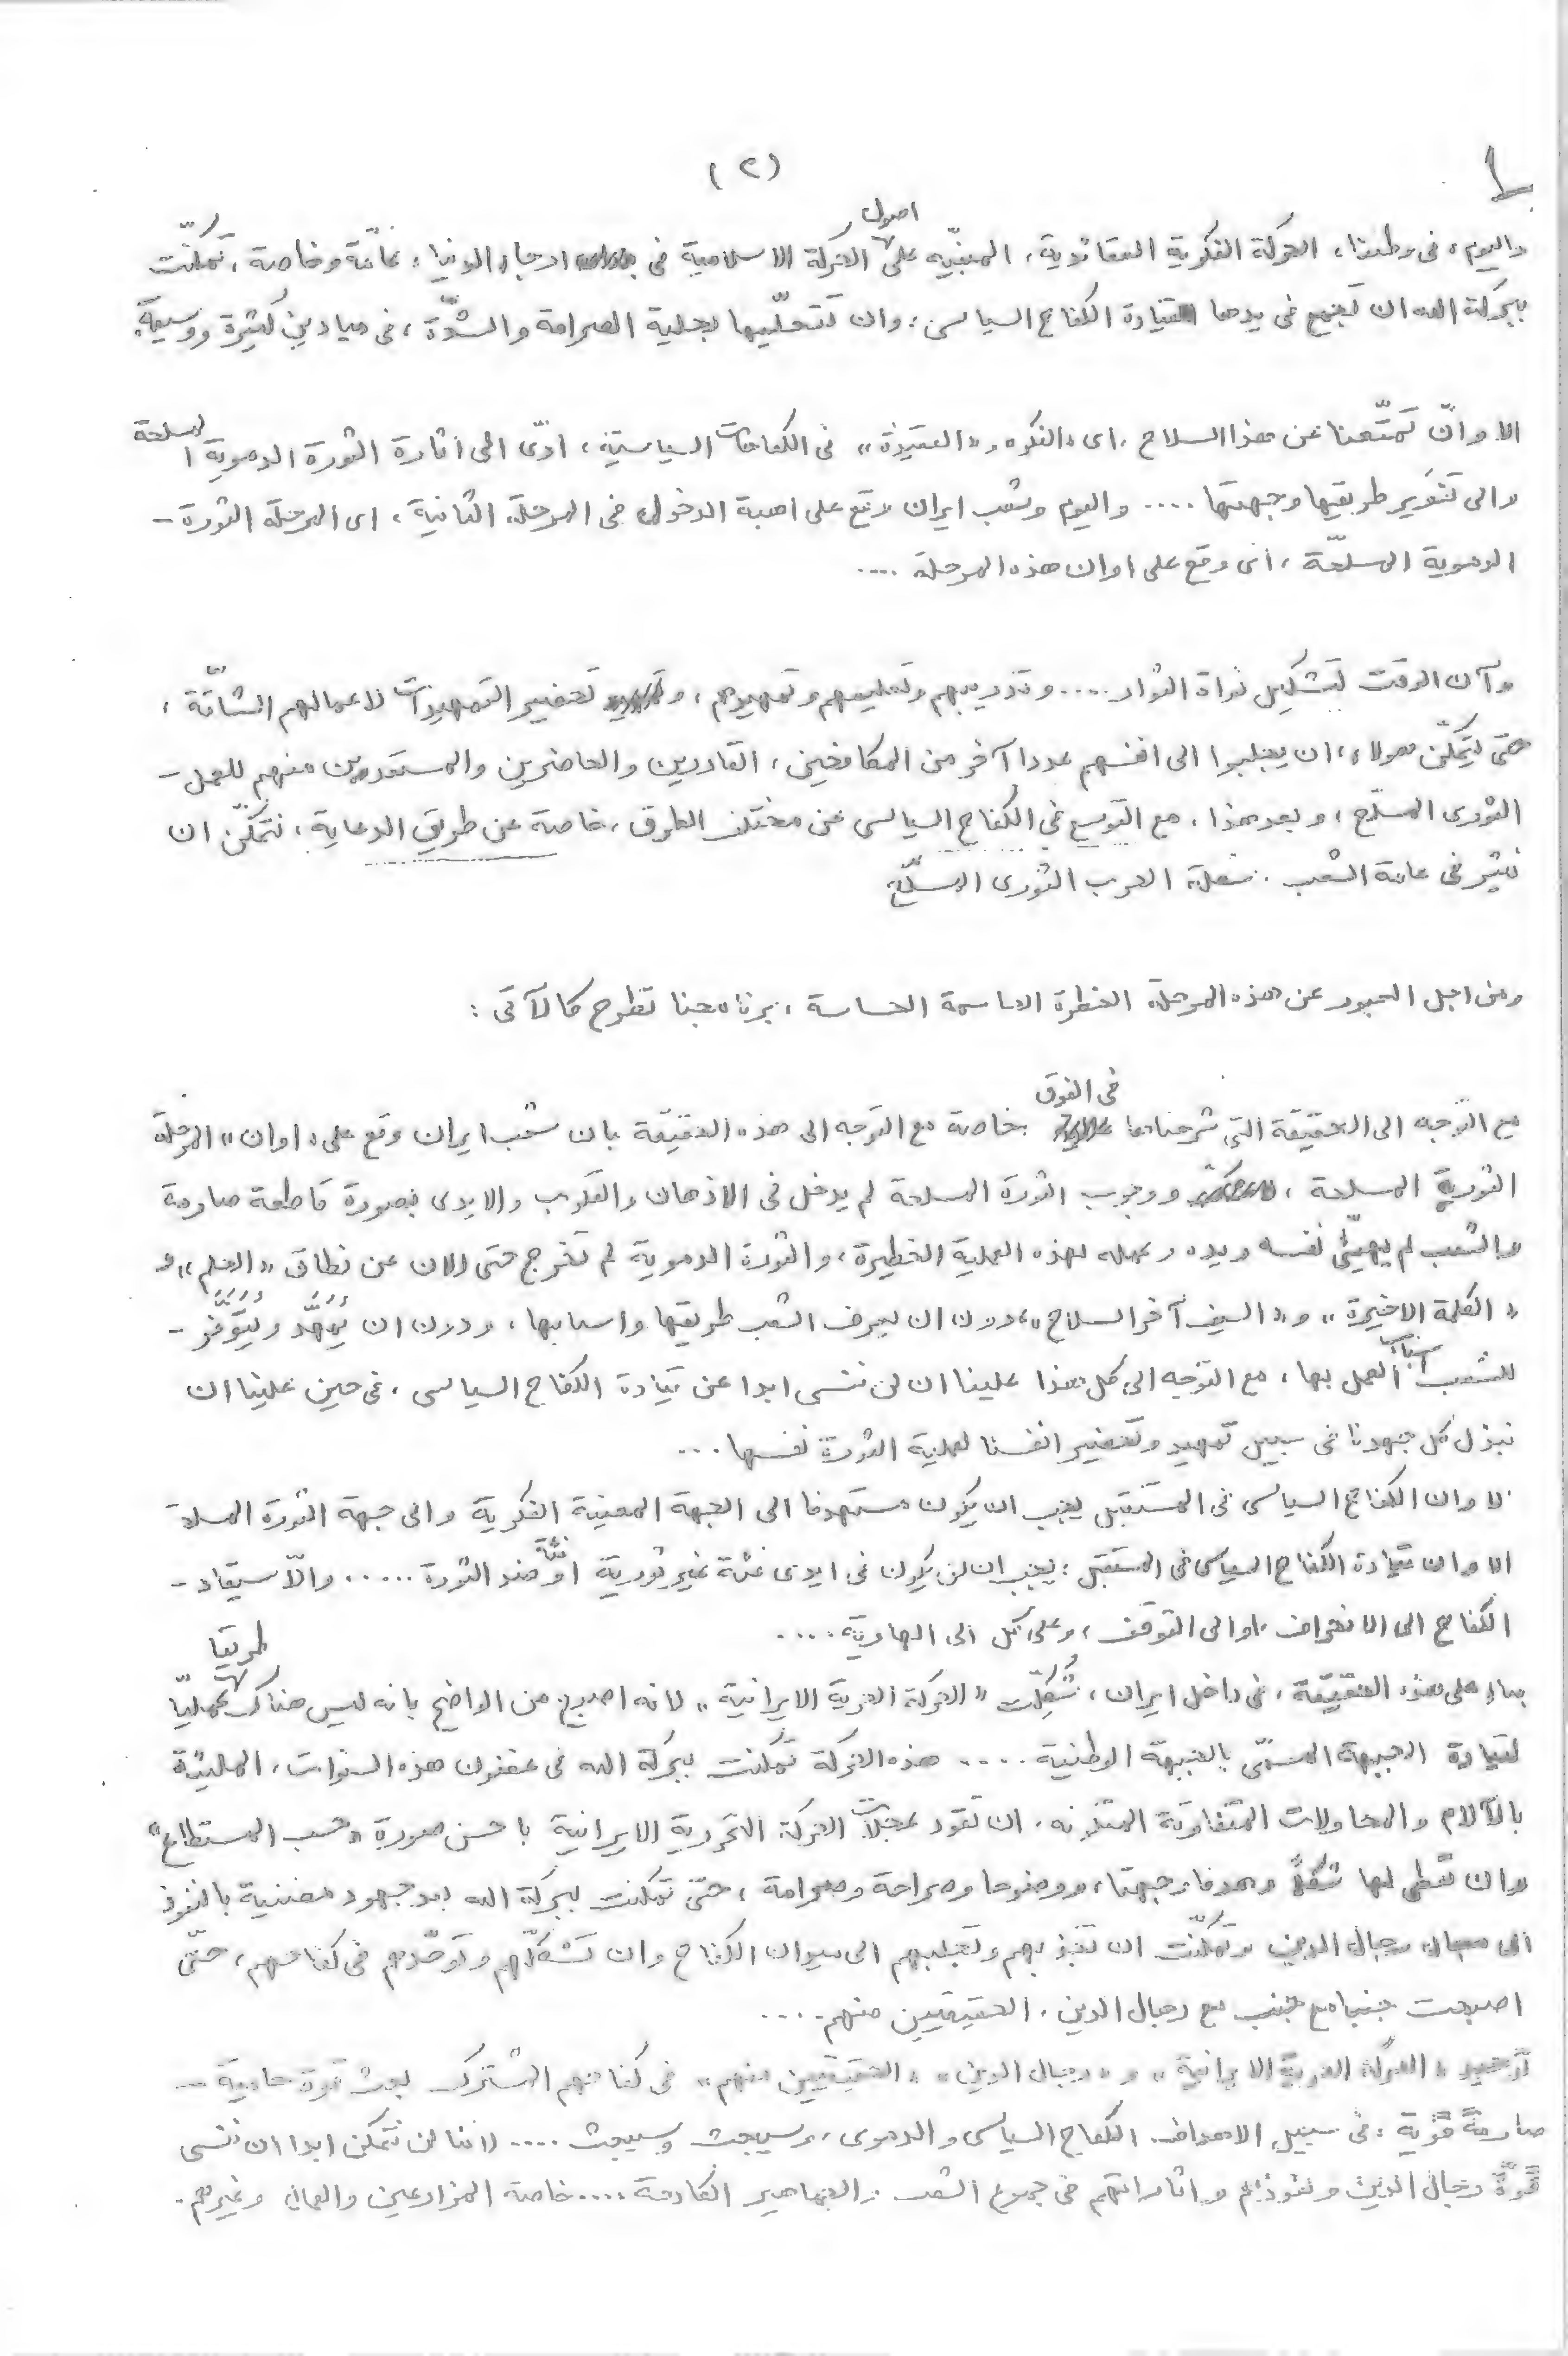 (٢)
واليوم، فى وطننا، الحركة الفكرية العقائدية، المبنيّه على اصول الحركة الاسلامية فى ارجاء الدنيا، عامّة وخاصة، تمكّنت
ببركة الله ان تجمع فى يدها قيادة الكفاح السياسى، وان تتحلّيها بحلية الصرامة والشدّة، فى ميادين كثيرة ووسيعة.
الا وانّ تمتّعنا عن هذا السلاح، اى «الفكره و«العقيدة» فى الكفاحات السياسيّة، ادّى الى اثارة الثورة الدموية المسلحة
والى تنوير طريقها وجهتها .... واليوم وشعب ايران وقع على اهبة الدخول فى المرحلة الثانية، اى المرحلة الثورة -
الدموية المسلحّة، اى وقع على اوان هذه المرحلة ....
وآن الوقت لتشكيل نواة الثوار .... وتدريبهم وتعليمهم وتمهيدهم، و تحضير التمهيدات لاعمالهم الشاقّة،
حتّى يتمكّن هولاء، ان يجلبوا الى انفسهم عددا آخر من المكافحين، القادرين والحاضرين والمستعدين منهم للعمل -
الثورى المسلّح، وبعد هذا، مع التوسع فى الكفاح السياسى عن مختلف الطرق، خاصة عن طريق الدعاية، نتمكّن ان
نثير فى عامة الشعب شعلة الحرب الثورى المسلّح
ومن اجل العبور عن هذه المرحلة الخطرة الحاسمة الحساسة، برنامجنا تطرح كالآتى:
مع التوجه الى الحقيقة التى شرحناها فى الفوق خاصة مع التوجه الى هذه الحقيقة بان شعب ايران وقع على «اوان» المرحلة
الثورية المسلحة، ووجوب الثورة المسلحة لم يدخل فى الاذهان والقلوب والايدى بصورة قاطعة صارمة
والشعب لم يهيّئ نفسه ويده وعمله لهذه العملية الخطيرة، والثورة الدموية لم تخرج حتى الان عن نطاق «العلم» و
«الكلمة الاخيرة» و«السيف آخر السلاح»، دون ان يعرف الشعب طريقها واسبابها، ودون ان يُمهَّد ويُتوَفَّر -
للشعب اسباب العمل بها، مع التوجه الى كل هذا علينا ان لن ننسى ابدا عن قيادة الكفاح السياسى، فى حين علينا ان
نبذل كل جهدنا فى سبيل تمهيد وتحضير انفسنا لعملية الثورة نفسها ...
الا وان الكفاح السياسى فى المستقبل يجب ان يكون مستهدفا الى الجهة المعنية الفكرية والى جهة الثورة المسلحة
الا وان قيادة الكفاح السياسى فى المستقبل: يجب ان لن يكون فى ايدى فئة غير ثورية او فئة ضد الثورة ..... والّا سيقاد -
الكفاح الى الانحراف، او الى التوقف، وعلى كل الى الهاوية ....
بناء على هذه الحقيقة، فى داخل ايران، شُكِّلت «الحركة الحرية الايرانية» لانه اصبح من الواضح بانه ليس هناك طريقا عمليّا
لقيادة الجبهة المسمّى بالجبهة الوطنية .... هذه الحركة تمكنت ببركة الله فى غضون هذه السنوات، المليئة
بالآلام والمحاولات المتفاوتة المتلونه، ان تقود عجلات الحركة التحررية الايرانية باحسن صورة «حسب المستطاع»
وان تعطى لها شكلاً وهدفا وجهتا، ووضوحا وصراحة وصرامة، حتّى تمكنت ببركة الله بعد جهود مضنية بالنفوذ
الى رجال الدين وتمكّنت ان تجذبهم وتجلبهم الى ميدان الكفاح وان تشكّلهم وتوحّدهم فى كفاحهم، حتّى
اصبحت جنبا مع جنب مع رجال الدين، الحقيقيين منهم ....
توحيد «الحركة الحرية الايرانية» و«رجال الدين» «الحقيقيين منهم» فى كفاحهم المشترك بعث قوة حامية -
صارمةً قويّة، فى سبيل الاهداف الكفاح السياسى والدموى، وسيبعث وسيبعث .... لاننا لن نتمكن ابدا ان ننسى
قوة رجال الدين ونفوذهم واثاراتهم فى جموع الشعب والجماهير الكادحة .... خاصة المزارعين والعمال وغيرهم.